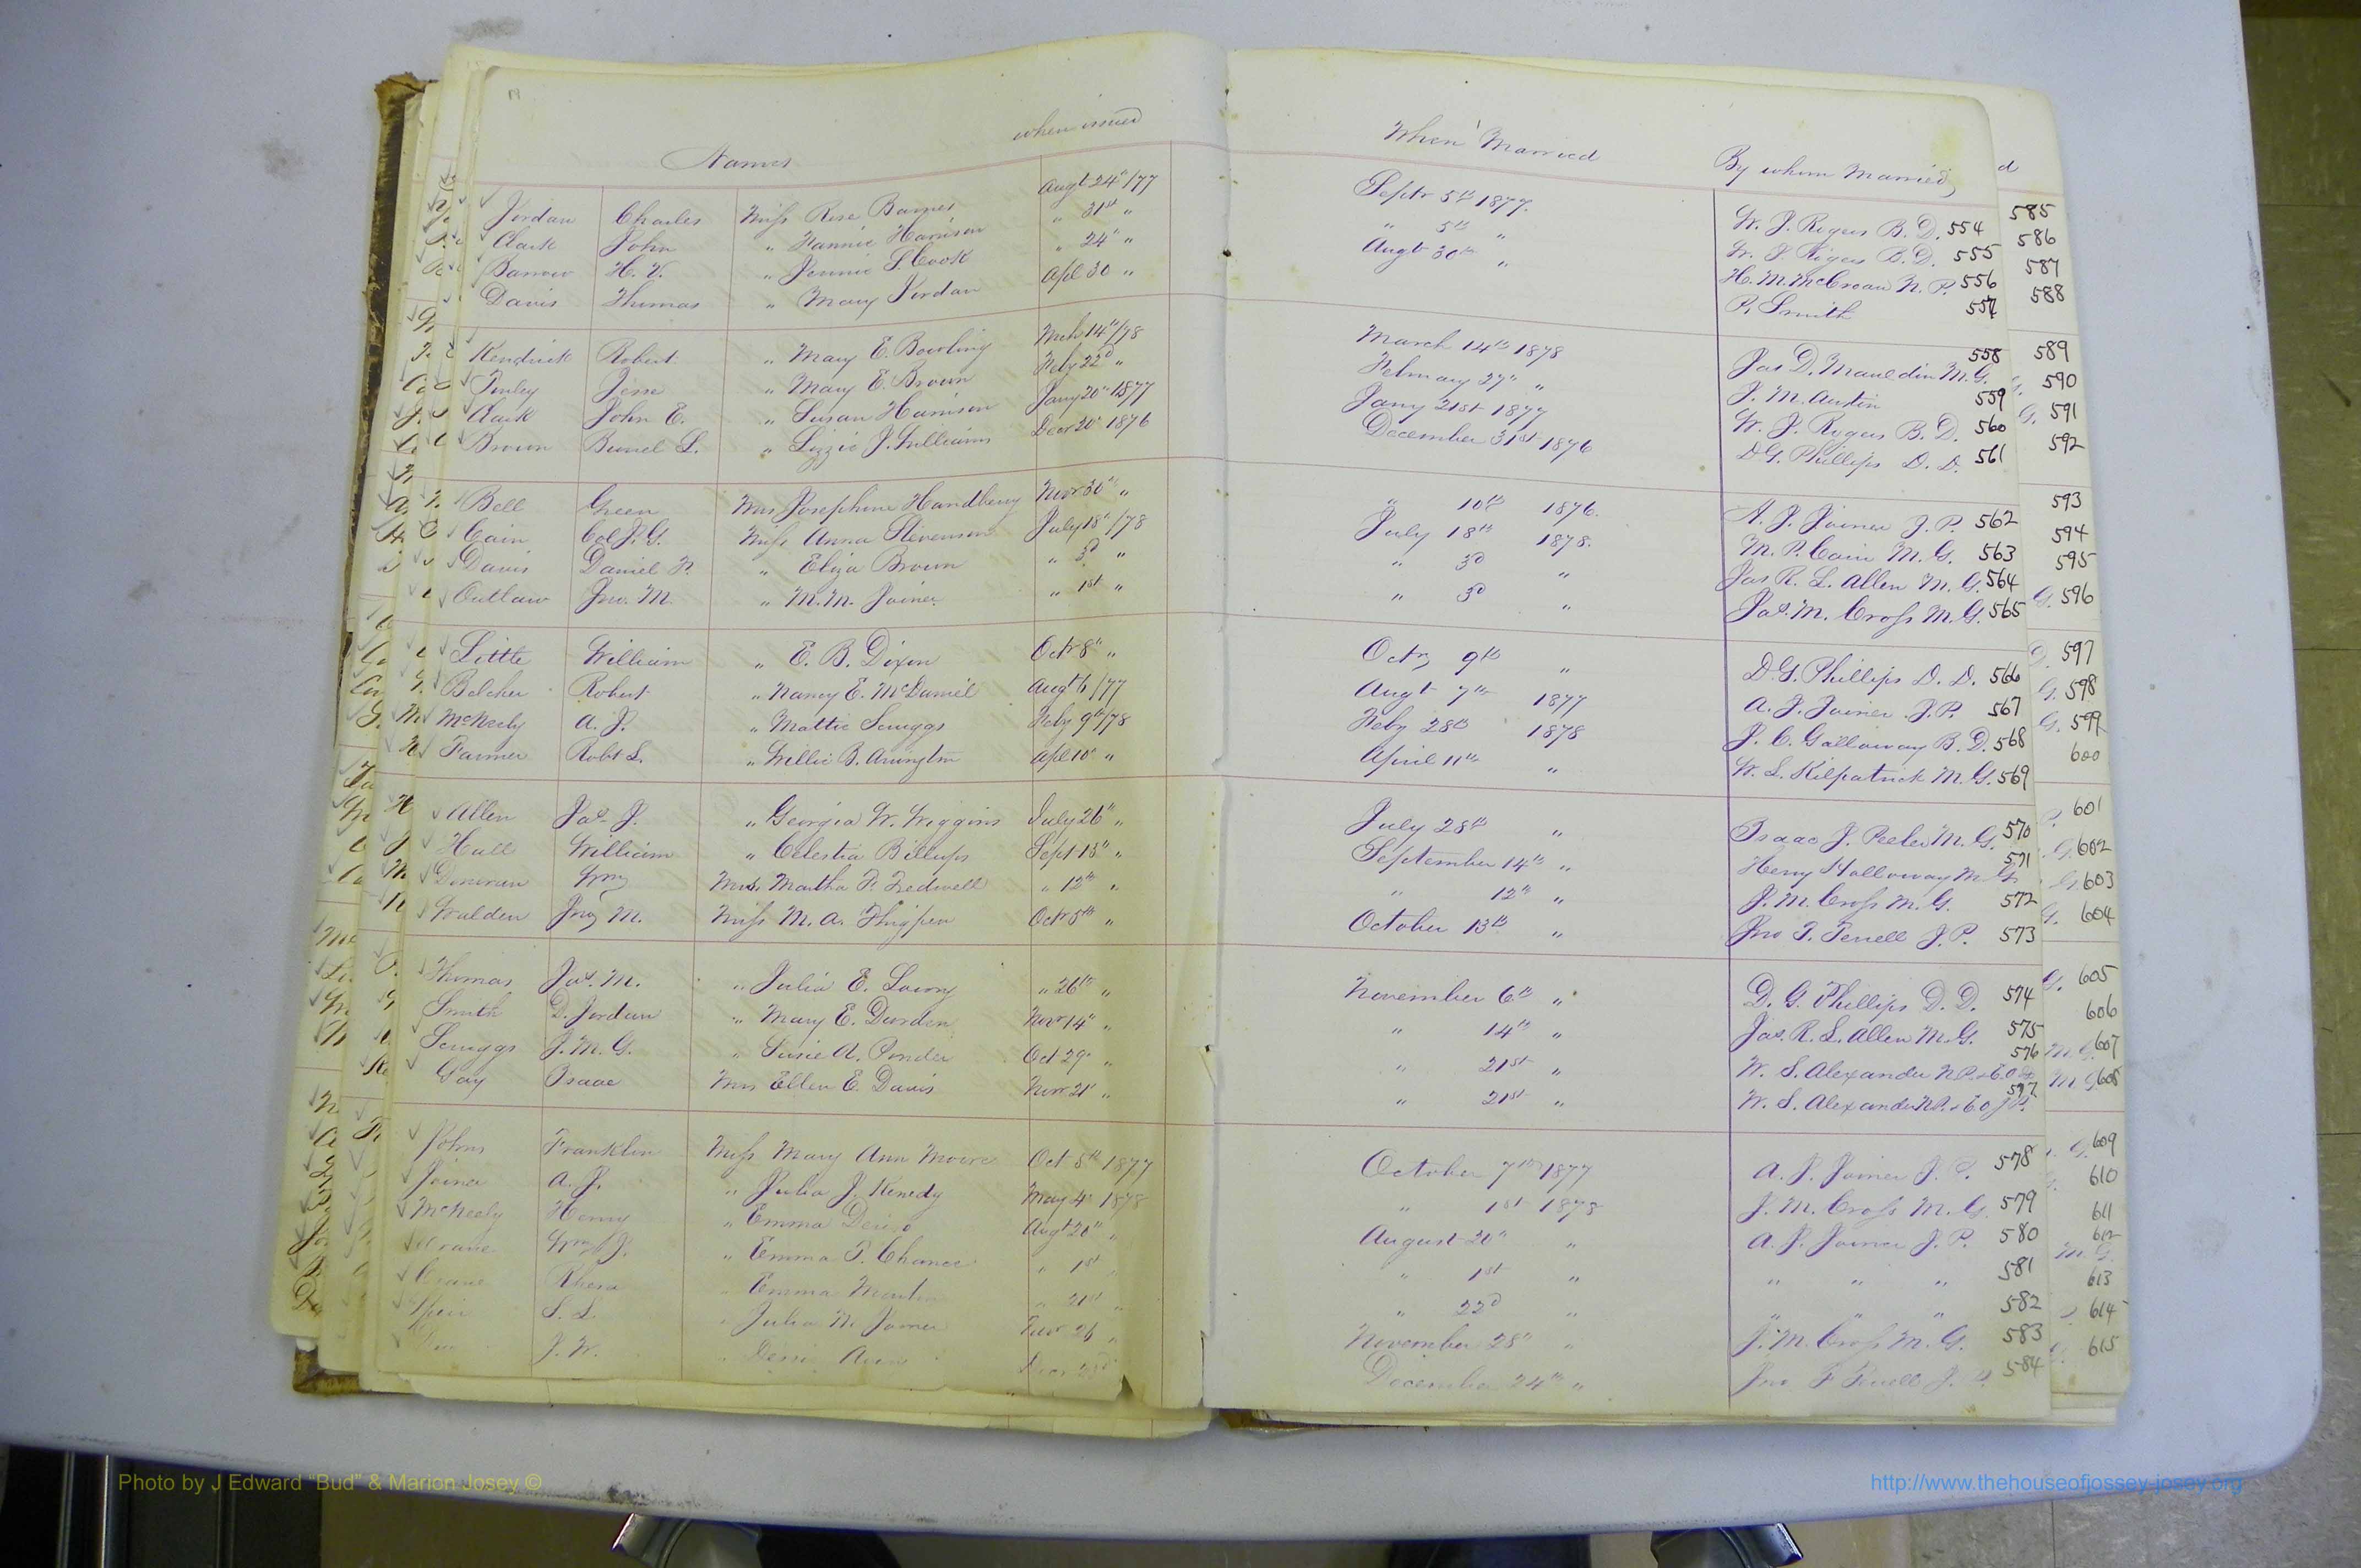 Names when issued When Married By whom Married
Jordan Charles Miss Rose Barnes Augt 24"/77 Septr 5th 1877. W. J. Rogers B. D. 554 585
Clark John " Fannie Harrison " 31st " " 5th " W. J. Rogers B. D. 555 586
Barrow H. V. " Jennie S. Cook " 24" " Augt 30th " H. M. McCroan N. P. 556 587
Davis Thomas " Mary Jordan Apl 30 " P. Smith 557 588
Kendrick Robert " Mary E. Bowling Mch 14th/78 March 14th 1878 Jas D. Mauldin M. G. 558 589
Finley Jesse " Mary E. Brown Feby 22d " February 27" " J. M. Austin 559 590
Clark John E. " Susan Harrison Jany 20" 1877 Jany 21st 1877 W. J. Rogers B. D. 560 591
Brown Burrel L. " Lizzie J. Williams Decr 20" 1876 December 31st 1876 D. G. Phillips D. D. 561 592
Bell Green Mrs Josephine Handberry Novr 30" " " 10th 1876. A. J. Joiner J. P. 562 593
Cain Col J. G. Miss Anna Stevenson July 18"/78 July 18th 1878. M. P. Cain M. G. 563 594
Davis Daniel P. " Eliza Brown " 3d " " 3d " Jas R. L. Allen M. G. 564 595
Outlaw Jno. M. " M. M. Joiner. " 1st " " 3d " Jas. M. Cross M. G. 565 596
Little William " E. B. Dixon Octr 8" " Octr, 9th " D. G. Phillips D. D. 566 597
Belcher Robert " Nancy E. McDaniel Augt 6/77 Augt 7th 1877 A. J. Joiner J. P. 567 598
McNeely A. J. " Mattie Scruggs Feby 9th/78 Feby 28th 1878 J. C. Galloway B. D. 568 599
Farmer Robt L. " Willie B. Arington Apl 10" " April 11th " W. L. Kilpatrick M. G. 569 600
Allen Jas. J. " Georgia W. Wiggins July 26" " July 28th " Isaac J. Peeler M. G. 570 601
Hall William " Celestia Billups Sept 13" " September 14th " Henry Holloway M. G. 571 602
Donovan Wm Mrs. Martha P. Tredwell " 12th " " 12th " J. M. Cross M. G. 572 603
Walden Jno M. Miss M. A. Thigpen Octr 8th " October 13th " Jno F. Terrell J. P. 573 604
Thomas Jas. M. " Julia E. Lowry " 26th " November 6th " D. G. Phillips D. D. 574 605
Smith D. Jordan " Mary E. Durden Novr 14" " " 14th " Jas. R. L. Allen M. G. 575 606
Scruggs J. M. G. " Susie A. Ponder Oct 29" " " 21st " W. S. Alexander N. P. & E. O. J. P. 576 607
Gay Isaac Mrs Ellen E. Davis Novr 21" " " 21st " W. S. Alexander N. P. & E. O J P. 577 608
Johns Franklin Miss Mary Ann Moore Oct 5th 1877 October 7th 1877 A. J. Joiner J. P. 578 609
Joiner A. J. " Julia J. Kenedy May 4" 1878 " 1st 1878 J. M. Cross M. G. 579 610
McNeely Henry " Emma Augt 20" " August 20" " A. J. Joiner J. P. 580 611
Crane Wm J. " Emma P. Chance " 1st " " 1st " " " " 581 612
Crane " Emma " 21st " " 22d " " " " 582 613
Speir S. S. " Julia M. Joiner Novr 26 " November 28" " J. M. Cross M. G. 583 614
J. W. " Decr 23d December 24th " Jno F Terrell J. P. 584 615
Photo by J Edward "Bud" & Marion Josey ©
http://www.thehouseofjossey-josey.org